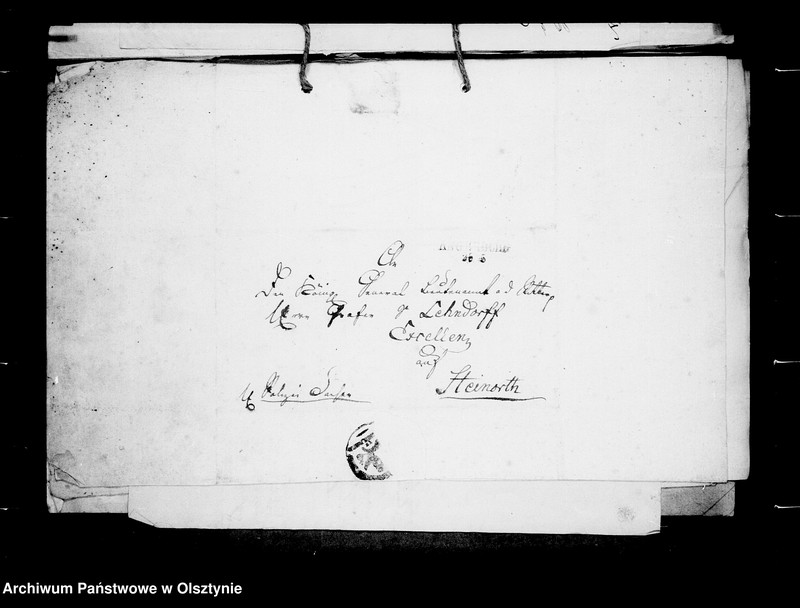 An
Den König General Lieutenant a. d. Ritter
Herrn Grafen v Lehndorff
Excellenz
auf
Steinorth
Polizei Sachen
Archiwum Państwowe w Olsztynie